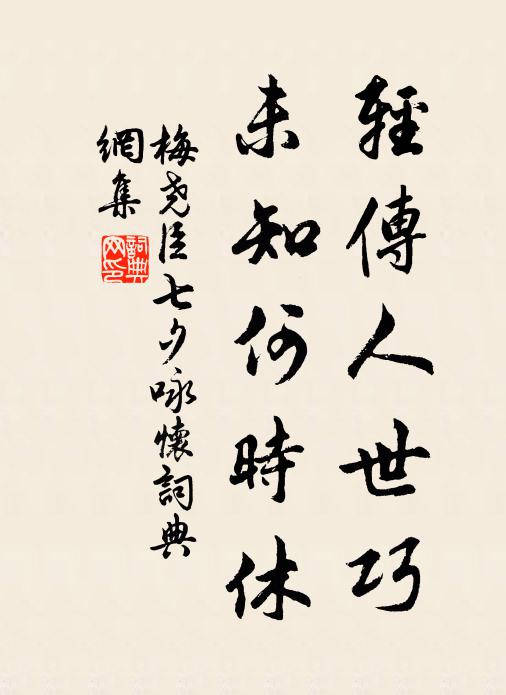 輕傳人世巧
未知何時休
梅堯臣七夕咏懷詞典
網集
詞典
网印